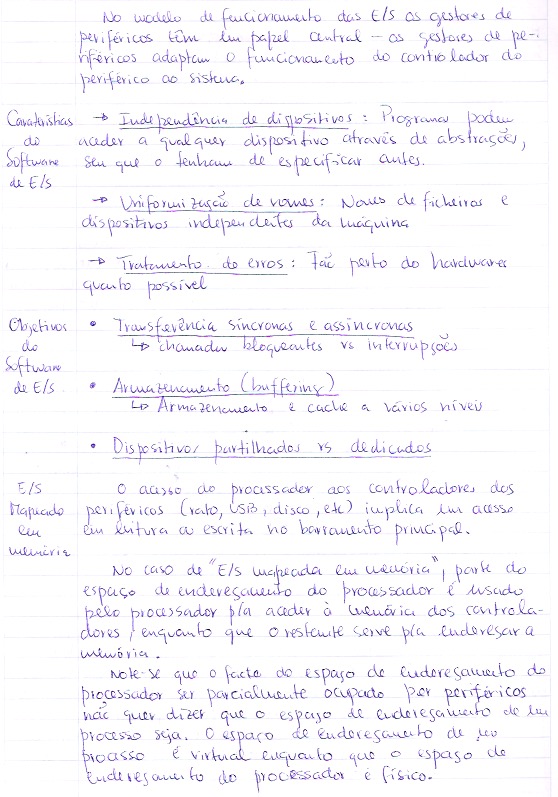 No modelo de funcionamento das E/S os gestores de
periféricos têm um papel central - os gestores de pe-
riféricos adaptam o funcionamento do controlador do
periférico ao sistema.
Caraterísticas do Software de E/S
→ Independência de dispositivos: Programas podem
aceder a qualquer dispositivo através de abstrações,
sem que o tenham de especificar antes.
→ Uniformização de nomes: Nomes de ficheiros e
dispositivos independentes da máquina
→ Tratamento de erros: Tão perto do hardware
quanto possível
Objetivos do Software de E/S
• Transferência síncronas e assíncronas
↳ chamadas bloqueantes vs interrupções
• Armazenamento (buffering)
↳ Armazenamento e cache a vários níveis
• Dispositivos partilhados vs dedicados
E/S Mapeado em memória
O acesso do processador aos controladores dos
periféricos (rato, USB, disco, etc) implica um acesso
em leitura ou escrita no barramento principal.
No caso de "E/S mapeada em memória", parte do
espaço de endereçamento do processador é usado
pelo processador p/a aceder à memória dos controla-
dores, enquanto que o restante serve p/a endereçar a
memória.
Note-se que o facto do espaço de endereçamento do
processador ser parcialmente ocupado por periféricos
não quer dizer que o espaço de endereçamento de um
processo seja. O espaço de endereçamento de um
processo é virtual enquanto que o espaço de
endereçamento do processador é físico.